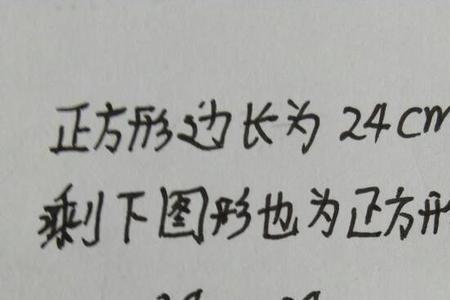 正方形边长为24cm
剩下图形也为正方形